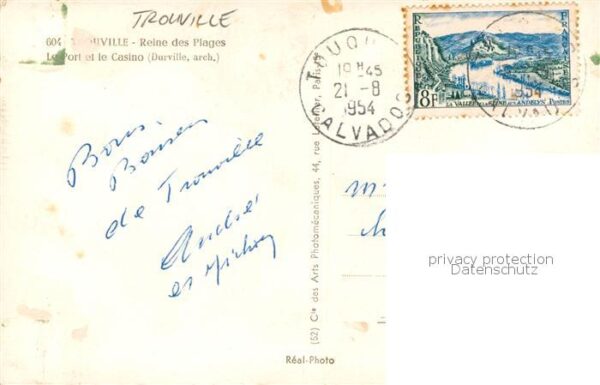 TROUVILLE
604 TROUVILLE - Reine des Plages
Le Port et le Casino (Durville, arch.)
TOUQUES
19H45
21 - 8
1954
CALVADOS
REPUBLIQUE FRANÇAISE
18F
LA VALLÉE DE LA SEINE AUX ANDELYS
Postes
1954
Bons
Baisers
de Trouville
André
et Michou
(52) Cie des Arts Photomécaniques, 44, rue Letellier, Paris
Réal-Photo
privacy protection
Datenschutz